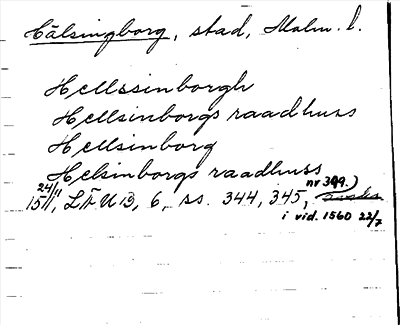 Hälsingborg, stad, Malm. l.
Hellssinborgh
Hellsinborgs raadhuss
Hellsinborg
Helsinborgs raadhuss
24/11 1511, LÄUB, 6, ss. 344, 345, nr 399.)
i vid. 1560 22/7